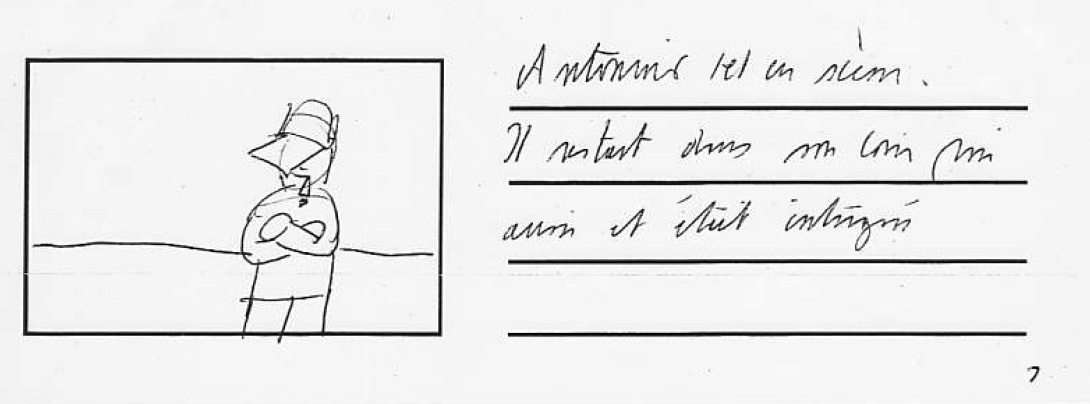 est en scène.
Il restait dans son coin lui
aussi et était intrigué
7